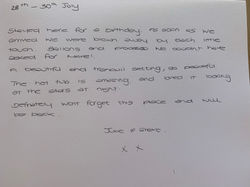 28th – 30th July
Stayed here for a birthday. As soon as we
arrived we were blown away by each little
touch. Balloons and prosecco. We couldn't have
asked for more!
A beautiful and tranquil setting, so peaceful
The hot tub is amazing and loved it looking
at the stars at night.
Definitely won't forget this place and will
be back.
& Steve.
x x